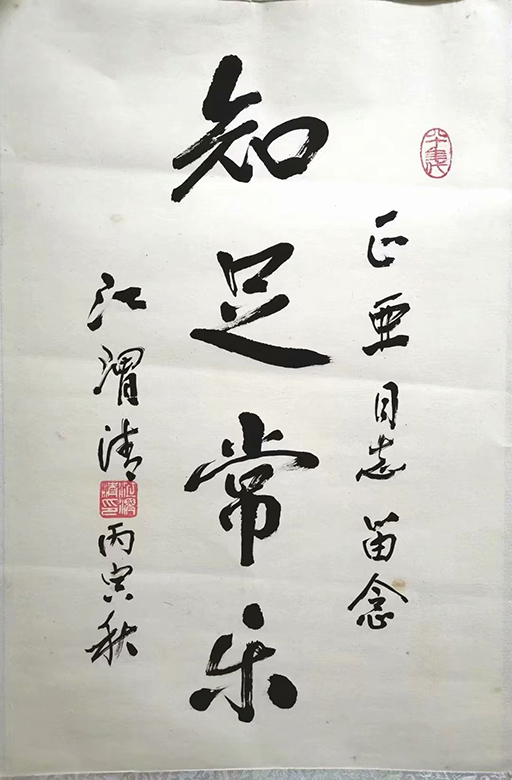 正亚同志留念
知足常乐
江渭清
丙寅秋